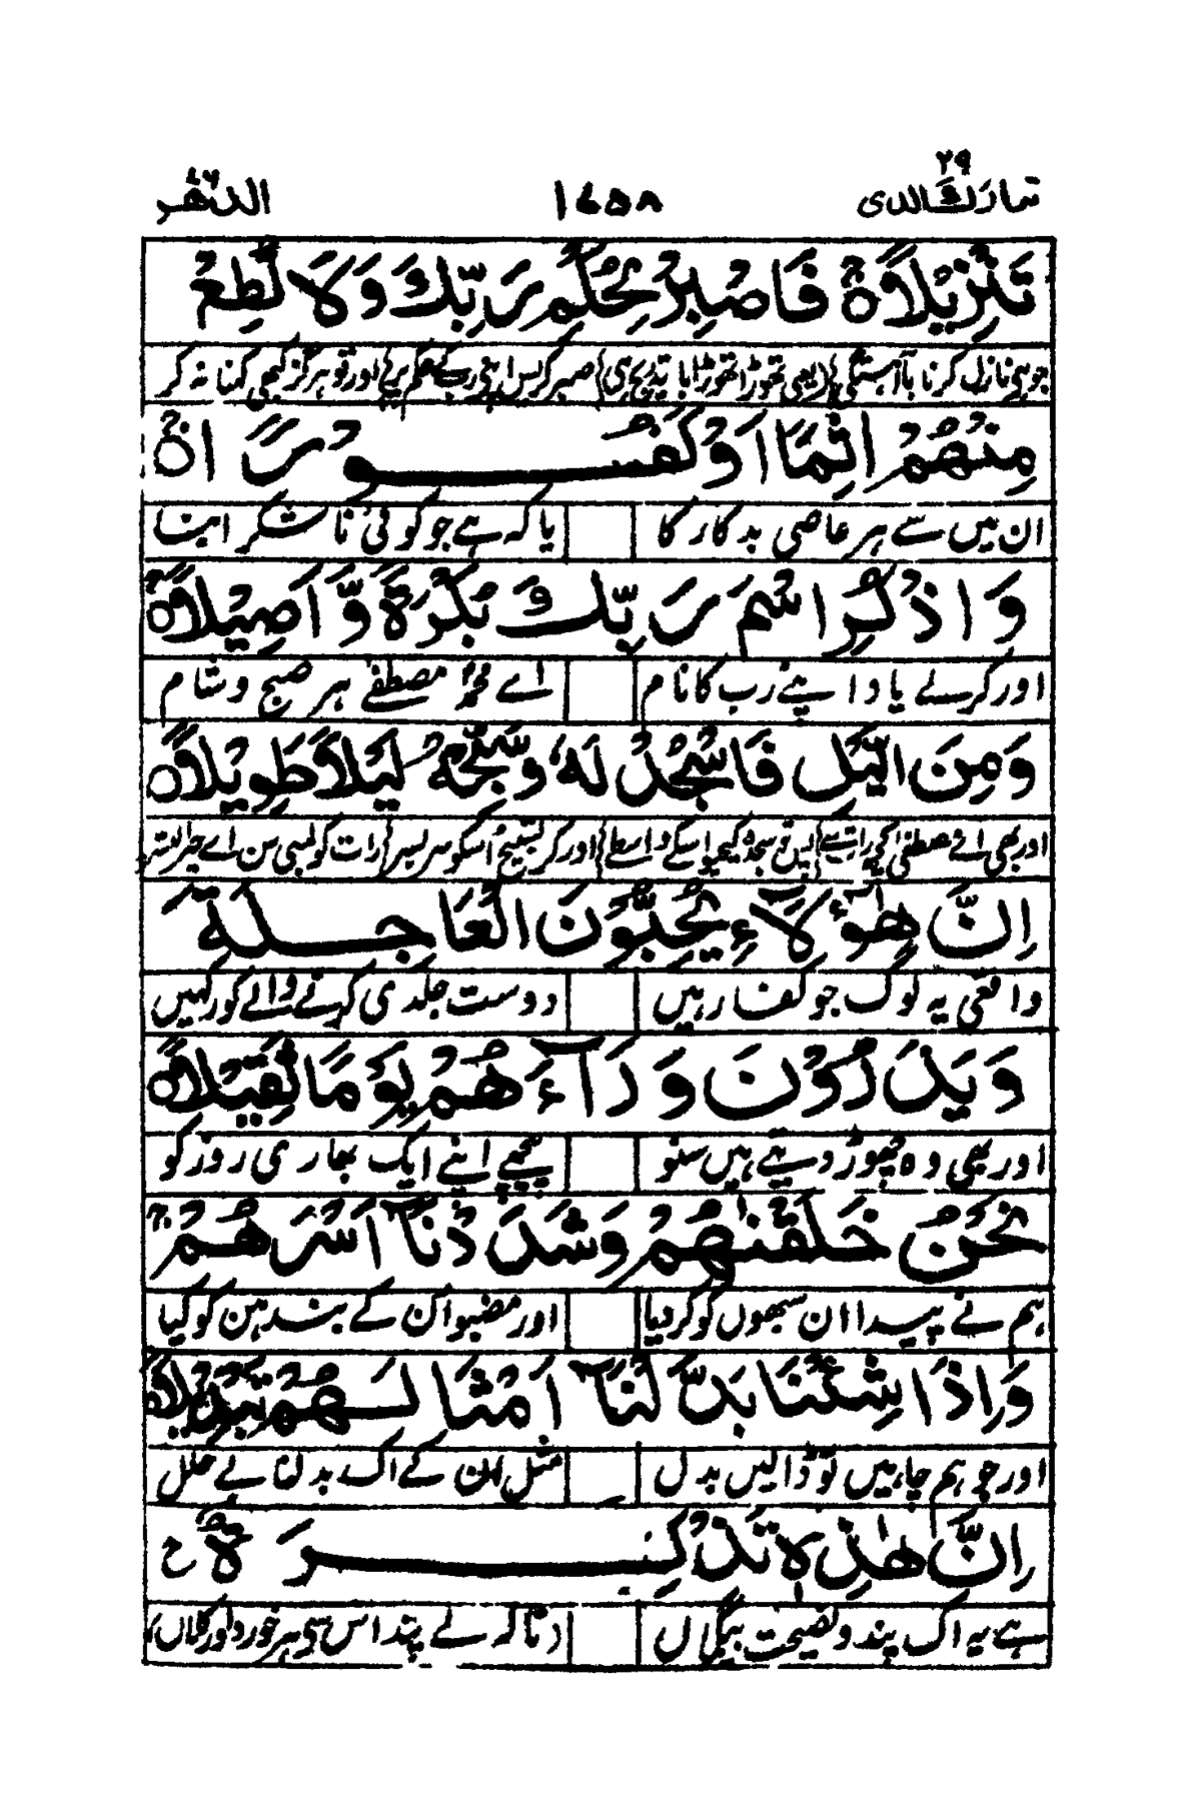 تبارك الذی ٢٩ ١٧٥٨ الدهر ٧٦
تَنْزِيْلًا ۝ فَاصْبِرْ لِحُكْمِ رَبِّكَ وَلَا تُطِعْ
جو ہے نازل کرنا با آہستگی (یعنی تھوڑا تھوڑا با تدریج ہی) صبر کر بس اپنے رب کے حکم پر اور تو ہرگز کبھی کہنا نہ کر
مِنْهُمْ اٰثِمًا اَوْ كَفُوْرًا ۝
ان میں سے ہر عاصی بدکار کا یا کہ ہے جو کوئی ناشکر
وَاذْكُرِ اسْمَ رَبِّكَ بُكْرَةً وَّاَصِيْلًا ۝
اور کر لے یاد اپنے رب کا نام اے محمد مصطفےٰ ہر صبح و شام
وَمِنَ الَّيْلِ فَاسْجُدْ لَهٗ وَسَبِّحْهُ لَيْلًا طَوِيْلًا ۝
اور بھی اے مصطفیٰ کچھ رات سے پس تو سجدہ کیجیو اسکے واسطے اور کر تسبیح اسکو سر بسر رات کو لمبی سن اے
اِنَّ هٰٓؤُلَآءِ يُحِبُّوْنَ الْعَاجِلَةَ
واقعی یہ لوگ جو کفار ہیں دوست جلدی کرنے والے کو رکہیں
وَيَذَرُوْنَ وَرَآءَهُمْ يَوْمًا ثَقِيْلًا ۝
اور بھی وہ چھوڑ دیتے ہیں سنو پیچھے اپنے ایک بھاری روز کو
نَحْنُ خَلَقْنٰهُمْ وَشَدَدْنَآ اَسْرَهُمْ
ہم نے پیدا ان سبھوں کو کر دیا اور مضبوط ان کے بندہن کو کیا
وَاِذَا شِئْنَا بَدَّلْنَآ اَمْثَالَهُمْ تَبْدِيْلًا ۝
اور جو ہم چاہیں تو ڈالیں بدل مثل ان کے اک بدلنا بے خلل
اِنَّ هٰذِهٖ تَذْكِرَةٌ ج
ہے یہ اک پند و نصیحت بیگماں تاکہ لے پند اس سے ہر خورد و کلاں